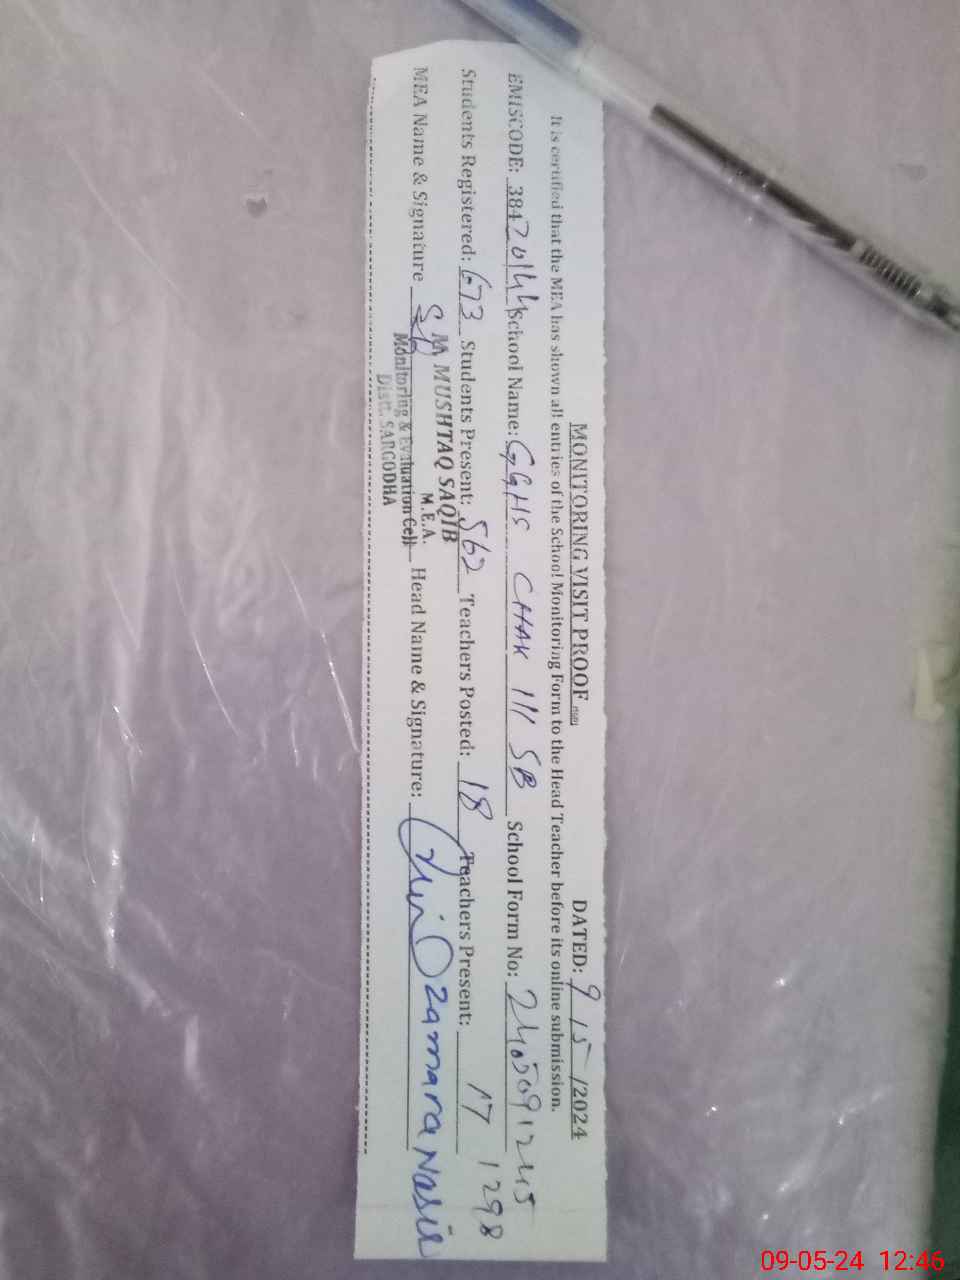 MONITORING VISIT PROOF DATED: 9 / 5 / 2024
It is certified that the MEA has shown all entries of the School Monitoring Form to the Head Teacher before its online submission.
EMISCODE: 38420144 School Name: GGHS CHAK 111 SB School Form No: 2405091245
1298
Students Registered: 673 Students Present: 562 Teachers Posted: 18 Teachers Present: 17
MEA Name & Signature Head Name & Signature: Ozamara Nasir
M MUSHTAQ SAQIB
M.E.A.
Monitoring & Evaluation Cell
Distt. SARGODHA
09-05-24 12:46